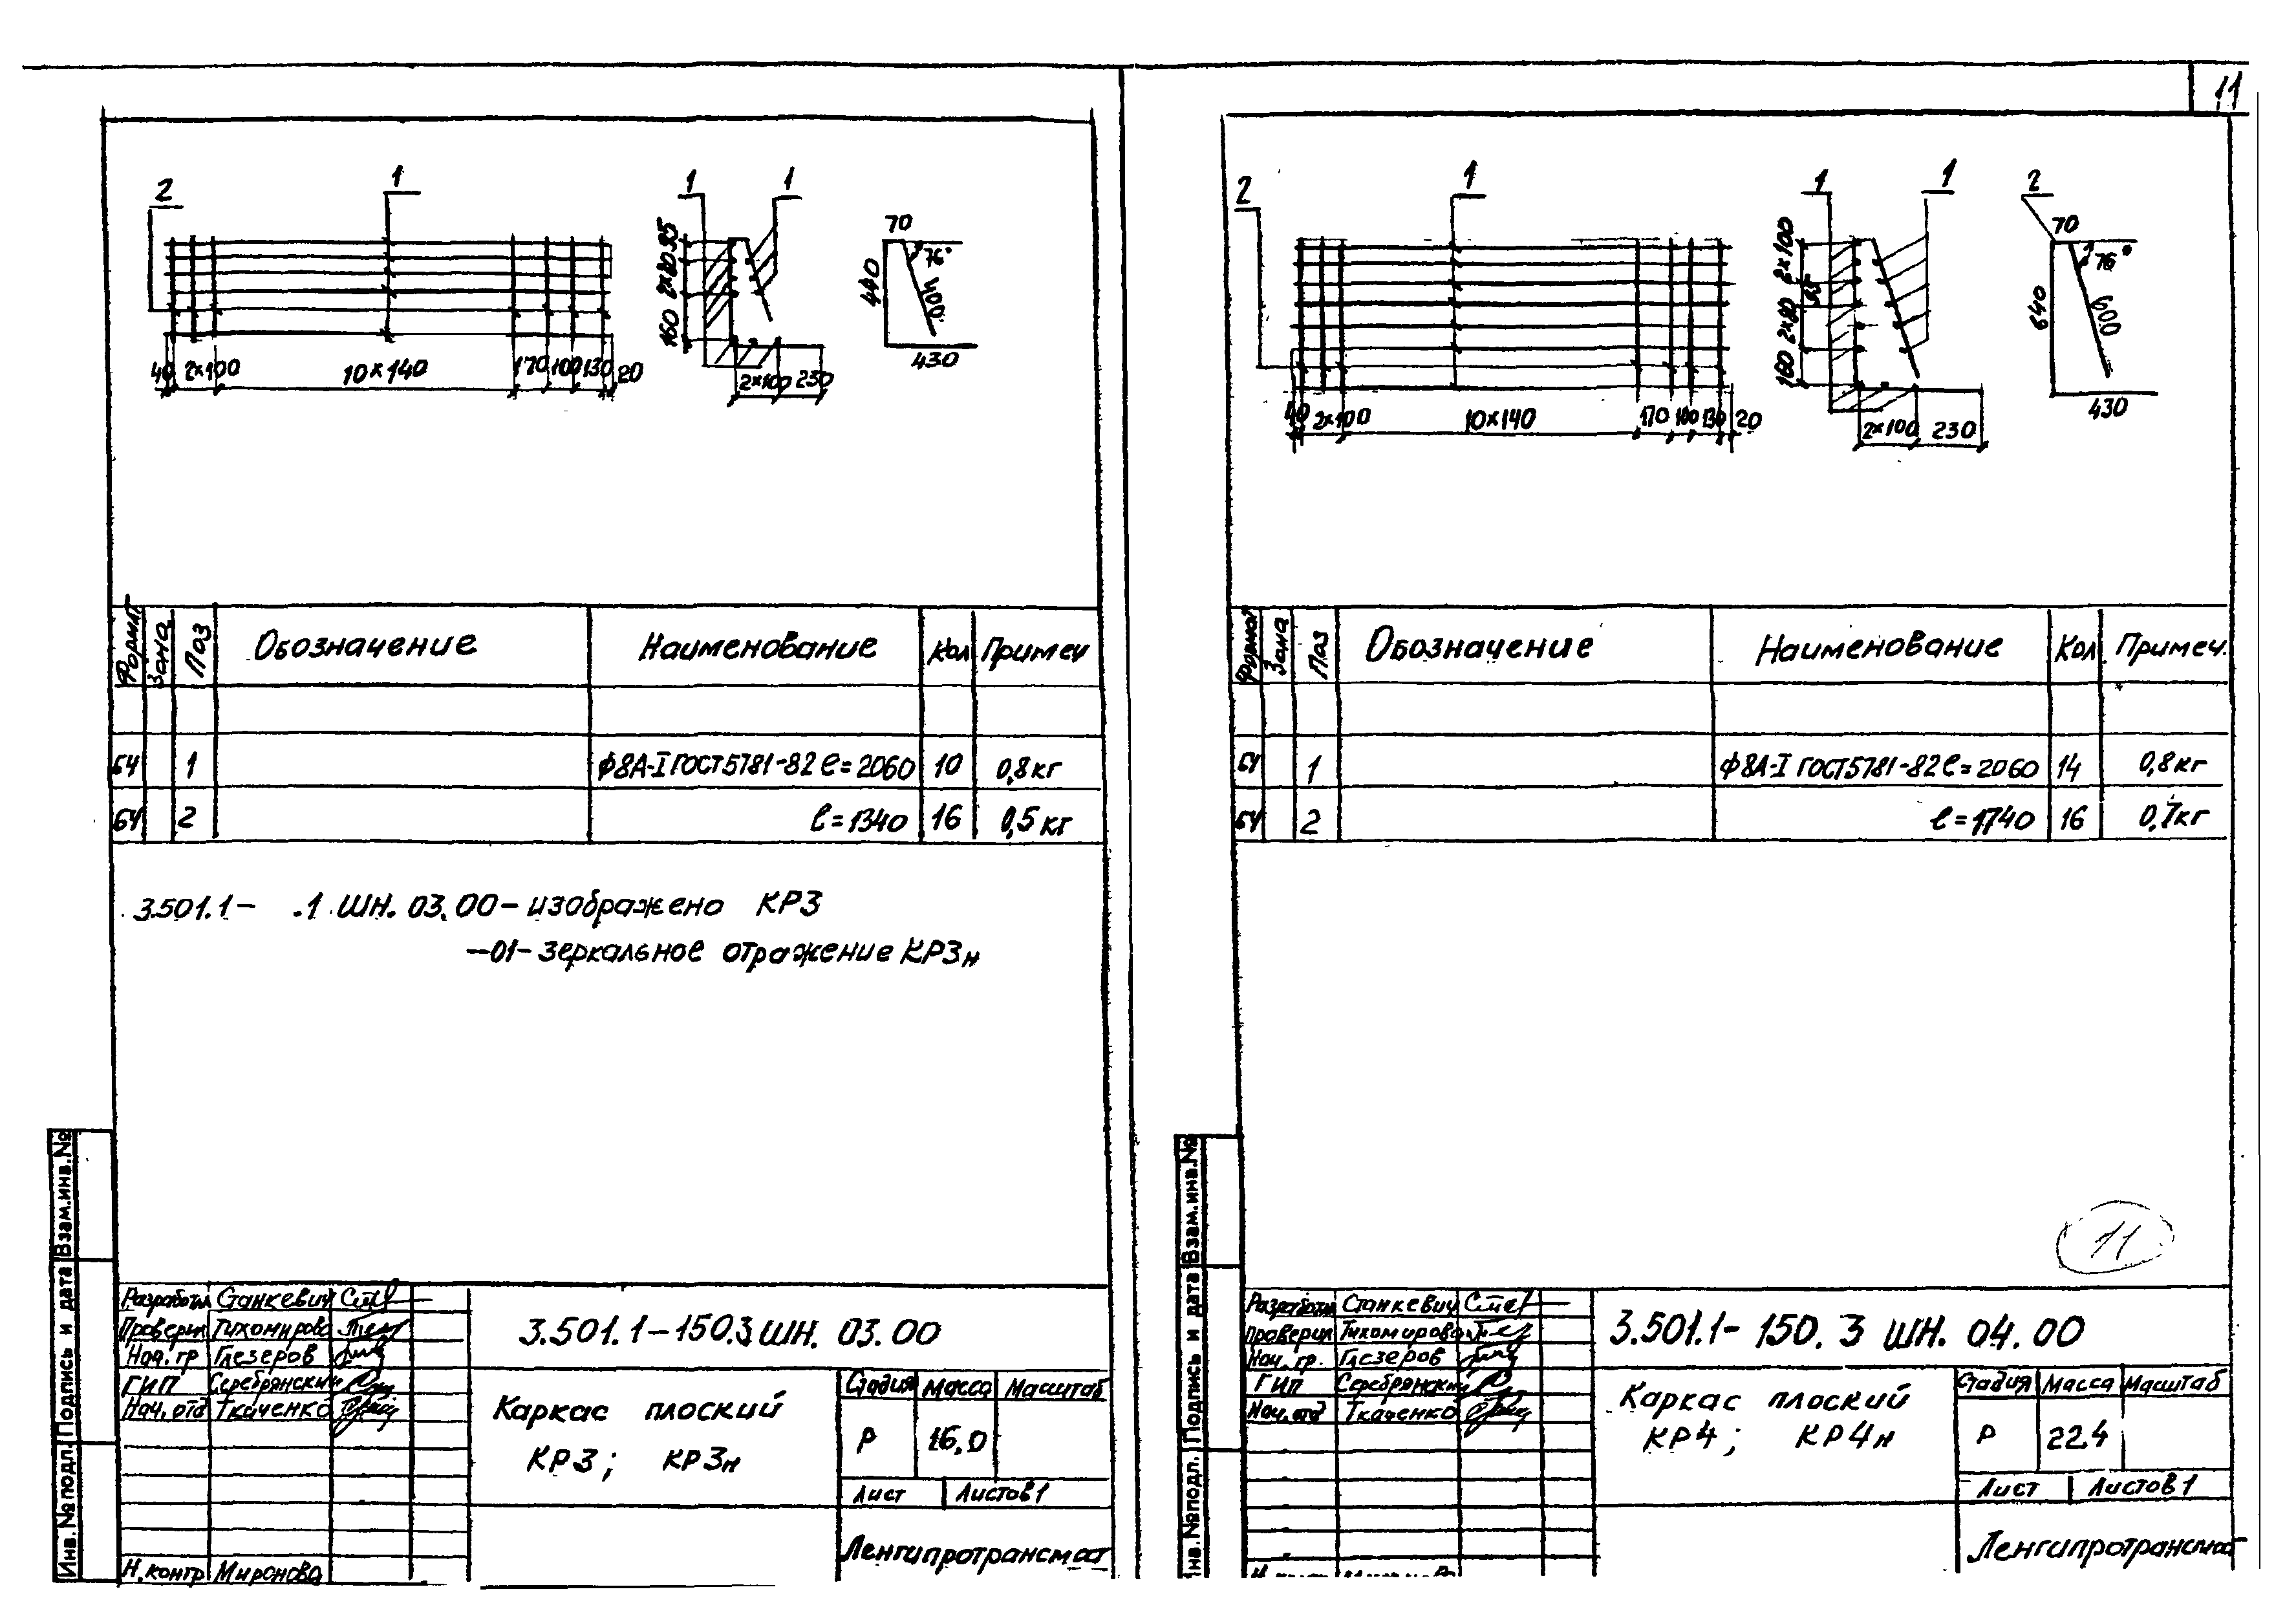 11
2
1
1
1
35
2×80
160
70
76°
440
400
430
40
2×100
10×140
170
100
130
20
2×100
230
Формат
Зона
Поз
Обозначение
Наименование
Кол
Примеч
БЧ
1
ф8А-I ГОСТ5781-82 ℓ=2060
10
0,8кг
БЧ
2
ℓ=1340
16
0,5кг
3.501.1- .1 ШН. 03.00-изображено КР3
-01-зеркальное отражение КР3н
Взам.инв.№
Подпись и дата
Инв.№подл.
Разработал Станкевич
Проверил Тихомирова
Нач. гр Глезеров
ГИП Серебрянский
Нач. отд Ткаченко
Н.контр Миронова
3.501.1-150.3 ШН. 03.00
Каркас плоский
КР3; КР3н
Стадия Масса Масштаб
Р 16,0
Лист Листов 1
Ленгипротрансмост
2
1
1
1
2
2×100
35
2×80
160
70
76°
640
600
430
40
2×100
10×140
170
100
130
20
2×100
230
Формат
Зона
Поз
Обозначение
Наименование
Кол
Примеч.
БЧ
1
ф8А-I ГОСТ5781-82 ℓ=2060
14
0,8кг
БЧ
2
ℓ=1740
16
0,7кг
11
Взам.инв.№
Подпись и дата
Инв.№подл.
Разработал Станкевич
Проверил Тихомирова
Нач. гр. Глезеров
ГИП Серебрянский
Нач. отд Ткаченко
3.501.1-150.3 ШН. 04.00
Каркас плоский
КР4; КР4н
Стадия Масса Масштаб
Р 22.4
Лист Листов 1
Ленгипротрансмост